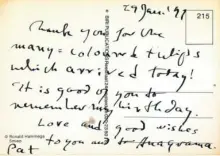 29 Jan. '97
215
Thank you for the
many-coloured tulips
which arrived today!
It is good of you to
remember my birthday.
Love and good wishes
to you and
Pat
© Ronald Hemmings